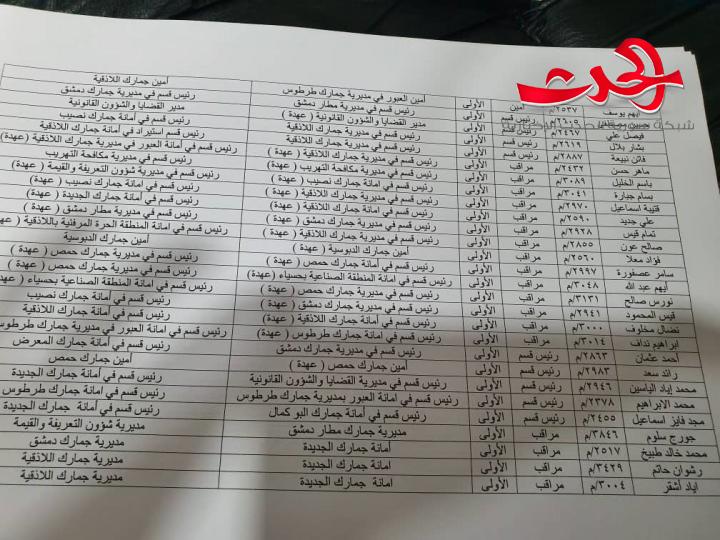 الحدث
أيهم يوسف ٢٥٣٧/م أمين الأولى أمين العبور في مديرية جمارك طرطوس أمين جمارك اللاذقية
٢٦٠٩/م رئيس قسم الأولى رئيس قسم في مديرية مطار دمشق رئيس قسم في مديرية جمارك دمشق
فيصل علي ٢٤٦٧/م رئيس قسم الأولى مدير القضايا والشؤون القانونية ( عهدة ) مدير القضايا والشؤون القانونية
بشار بلال ٢٦١٩/م رئيس قسم الأولى رئيس قسم في مديرية جمارك اللاذقية رئيس قسم في أمانة جمارك نصيب
فاتن نبيعة ٢٨٨٧/م رئيس قسم الأولى رئيس قسم في مديرية جمارك اللاذقية رئيس قسم استيراد في أمانة جمارك اللاذقية
ماهر حسن ٢٤٣٢/م مراقب الأولى رئيس قسم في مديرية جمارك اللاذقية ( عهدة ) رئيس قسم في أمانة العبور في مديرية جمارك اللاذقية (عهدة)
باسم الخليل ٣٠٨٩/م مراقب الأولى رئيس قسم في مديرية مكافحة التهريب ( عهدة ) رئيس قسم في مديرية مكافحة التهريب
بسام جبارة ٣٠٤١/م مراقب الأولى رئيس قسم في امانة جمارك نصيب ( عهدة ) رئيس قسم في مديرية شؤون التعريفة والقيمة ( عهدة )
قتيبة اسماعيل ٢٩٧٠/م مراقب الأولى رئيس قسم في امانة جمارك اللاذقية ( عهدة ) رئيس قسم في أمانة جمارك نصيب ( عهدة )
علي جديد ٢٥٩٠/م مراقب الأولى رئيس قسم في مديرية جمارك دمشق ( عهدة ) رئيس قسم في أمانة جمارك الجديدة ( عهدة )
تمام قيس ٢٩٢٨/م مراقب الأولى رئيس قسم في مديرية جمارك اللاذقية ( عهدة ) رئيس قسم في مديرية مطار دمشق ( عهدة )
صالح عون ٢٨٥٥/م مراقب الأولى أمين جمارك الدبوسية ( عهدة ) رئيس قسم في امانة المنطقة الحرة المرفئية باللاذقية ( عهدة )
فؤاد معلا ٢٥٦٠/م مراقب الأولى رئيس قسم في مديرية جمارك حمص ( عهدة ) أمين جمارك الدبوسية
سامر عصفورة ٢٩٩٧/م مراقب الأولى رئيس قسم في أمانة المنطقة الصناعية بحسياء ( عهدة ) رئيس قسم في مديرية جمارك حمص ( عهدة )
أيهم عبد الله ٣٠٤٨/م مراقب الأولى رئيس قسم في مديرية جمارك حمص ( عهدة ) رئيس قسم في مديرية جمارك حمص ( عهدة )
نورس صالح ٣١٣١/م مراقب الأولى رئيس قسم في مديرية جمارك دمشق ( عهدة ) رئيس قسم في أمانة المنطقة الصناعية بحسياء ( عهدة )
قيس المحمود ٢٩٤١/م مراقب الأولى رئيس قسم في أمانة جمارك اللاذقية ( عهدة ) رئيس قسم في أمانة جمارك نصيب
نضال مخلوف ٣٠٠٠/م مراقب الأولى رئيس قسم في مديرية جمارك طرطوس ( عهدة ) رئيس قسم في أمانة جمارك اللاذقية
ابراهيم نداف ٣٠١٤/م مراقب الأولى رئيس قسم في مديرية جمارك دمشق رئيس قسم في امانة العبور في مديرية جمارك طرطوس
أحمد عثمان ٢٨٦٣/م رئيس قسم الأولى أمين جمارك حمص ( عهدة ) رئيس قسم في أمانة جمارك المعرض
رائد سعد ٢٩٨٣/م رئيس قسم الأولى رئيس قسم في مديرية القضايا و الشؤون القانونية أمين جمارك حمص
محمد اياد الياسين ٢٩٤٦/م رئيس قسم الأولى رئيس قسم في امانة العبور بمديرية جمارك طرطوس رئيس قسم في أمانة جمارك الجديدة
محمد الابراهيم ٢٣٧٨/م رئيس قسم الأولى رئيس قسم في امانة جمارك البو كمال رئيس قسم في امانة جمارك طرطوس
مجد فايز اسماعيل ٢٤٥٥/م رئيس قسم الأولى مديرية جمارك مطار دمشق رئيس قسم في أمانة جمارك الجديدة
جورج سلوم ٣٨٤٦/م مراقب الأولى أمانة جمارك الجديدة مديرية شؤون التعريفة والقيمة
محمد خالد طبيخ ٢٥١٧/م مراقب الأولى امانة جمارك الجديدة مديرية جمارك دمشق
رشوان حاتم ٣٤٢٩/م مراقب الأولى امانة جمارك الجديدة مديرية جمارك اللاذقية
اياد أشقر ٣٠٠٤/م مراقب الأولى امانة جمارك الجديدة مديرية جمارك اللاذقية